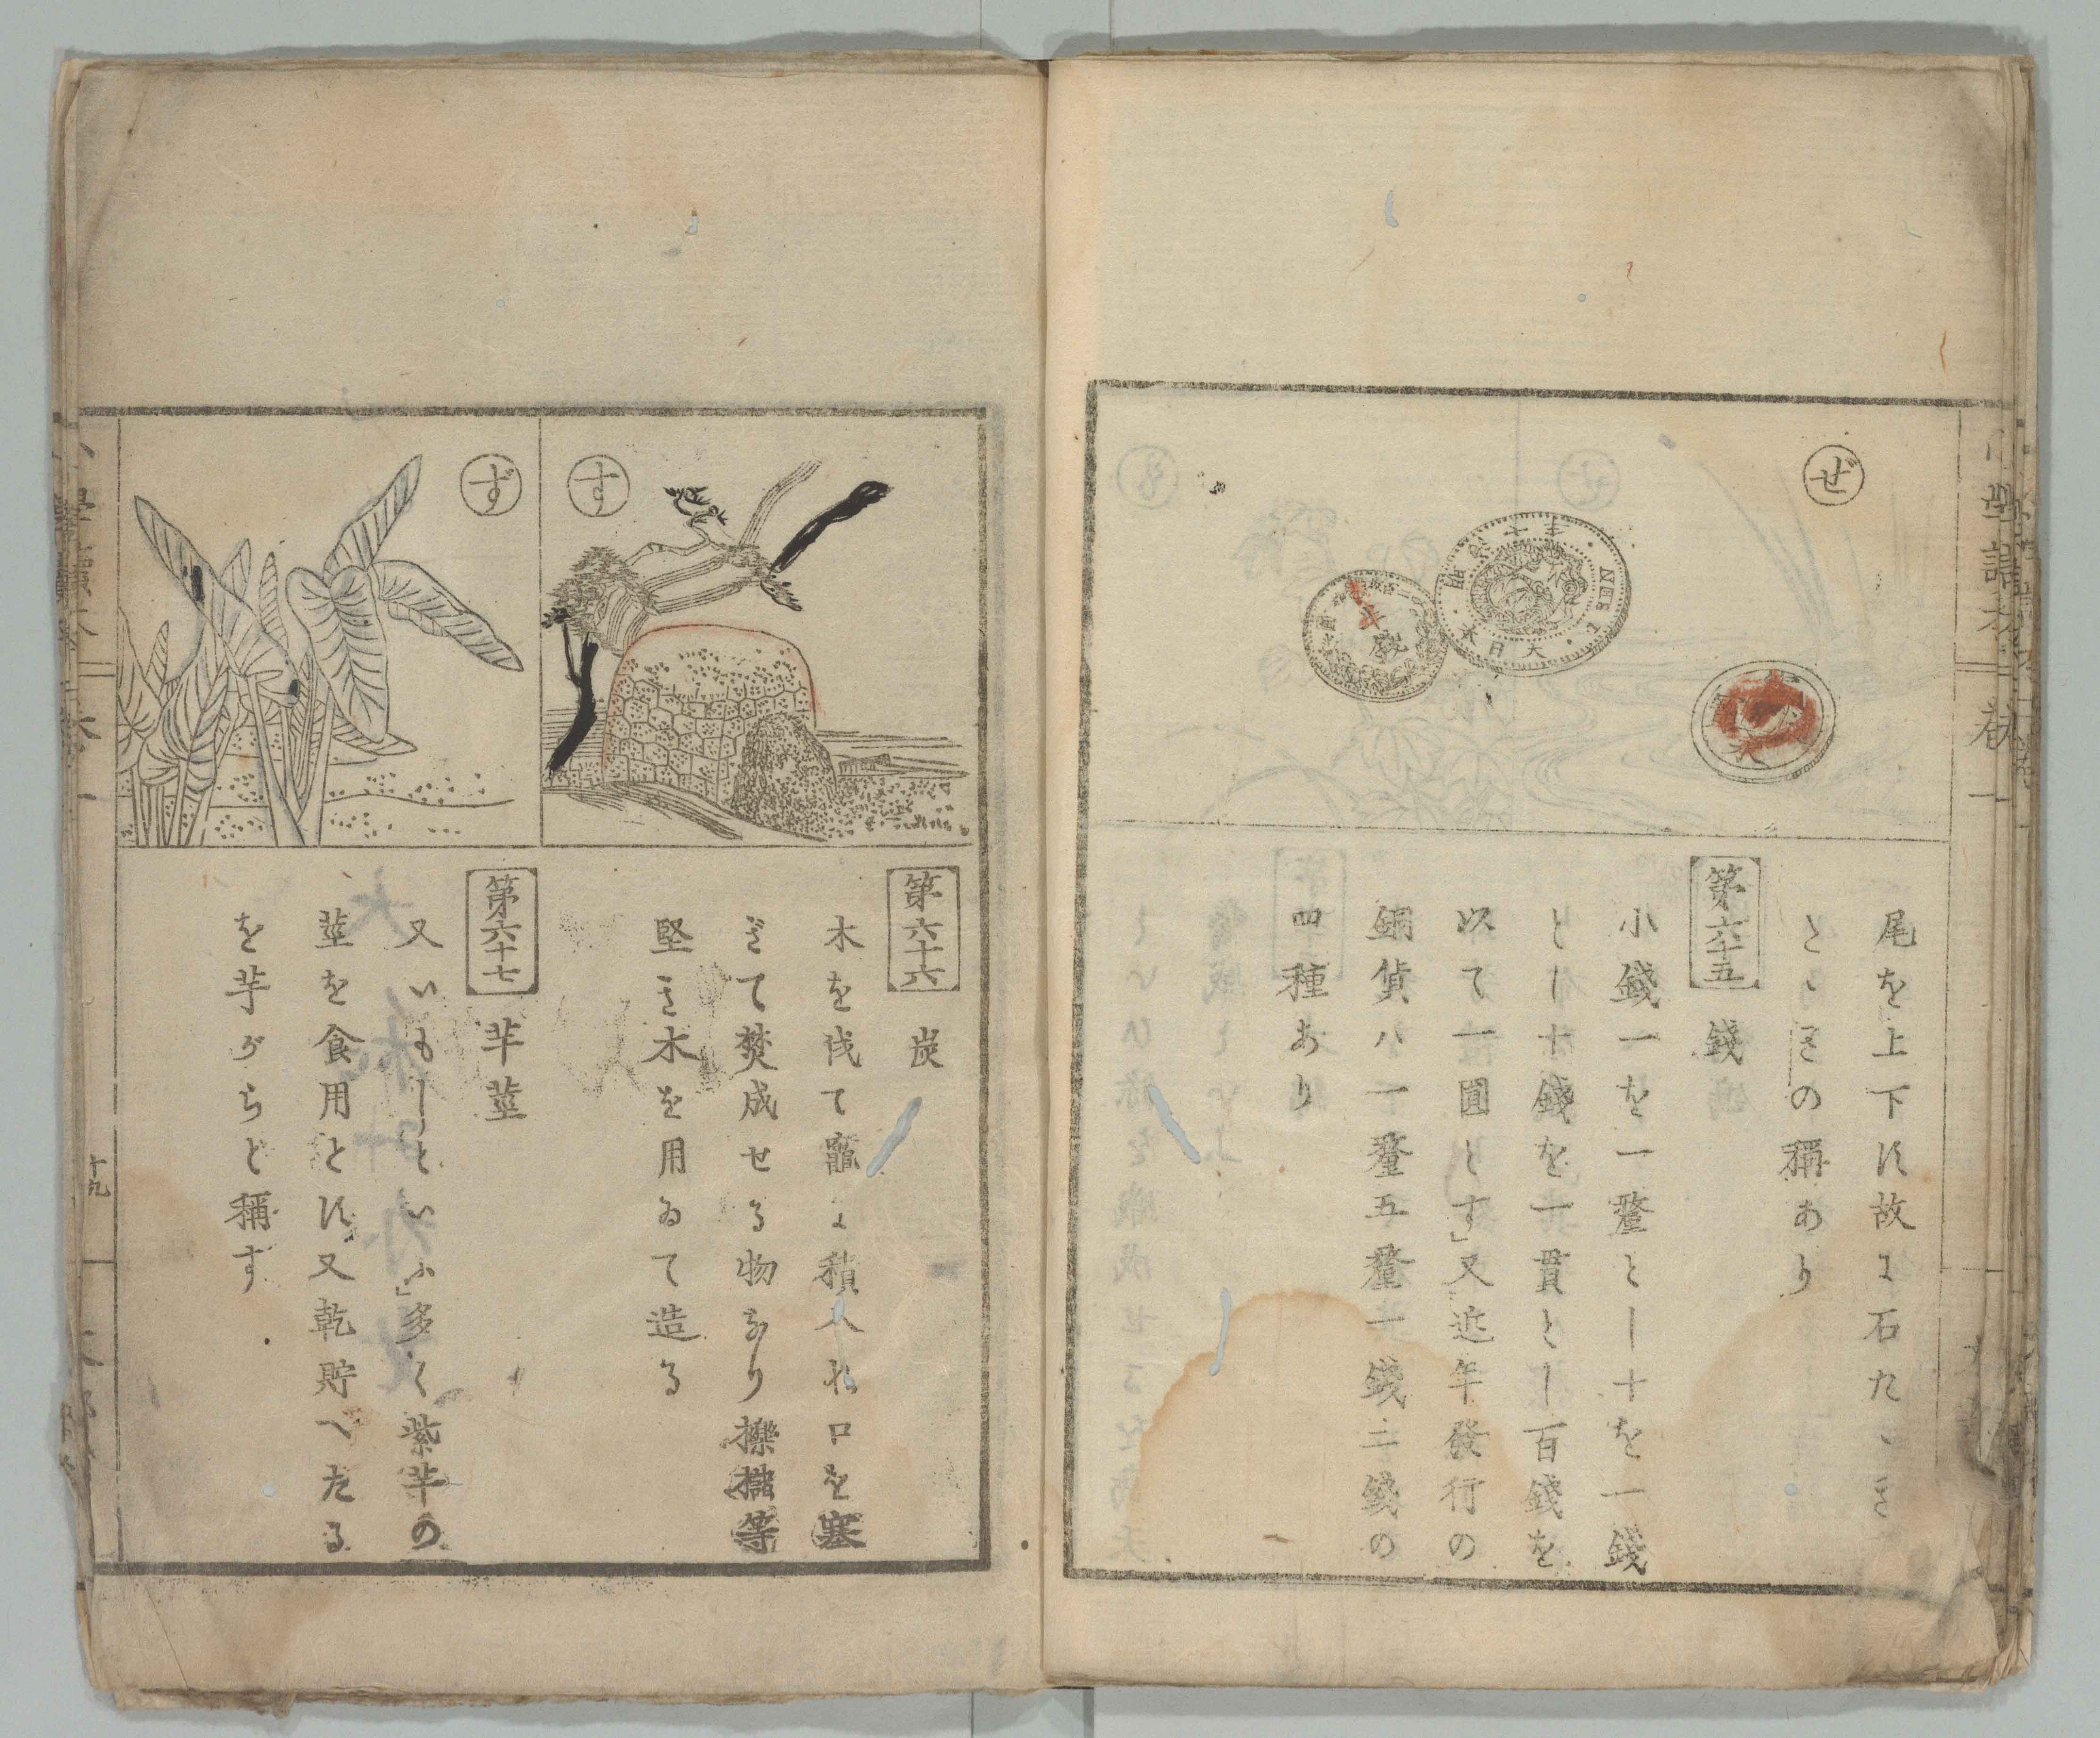 ぜ
尾を上下す故に石たゝき
とゝきの稱あり
第六十五 錢
小錢一を一釐とし十を一錢
とし十錢を一貫とし百錢を
以て一圓とす」又近年發行の
銅貨ハ一釐五釐一錢二錢の
四種あり
す
ず
第六十六 炭
木を伐て竈に積入れ口を塞
ぎて焚成せる物なり擽櫧等
堅き木を用ゐて造る
第六十七 芋莖
又いもしといふ」多く紫芋の
莖を食用とす又乾貯へたる
を芋がらと稱す
十九